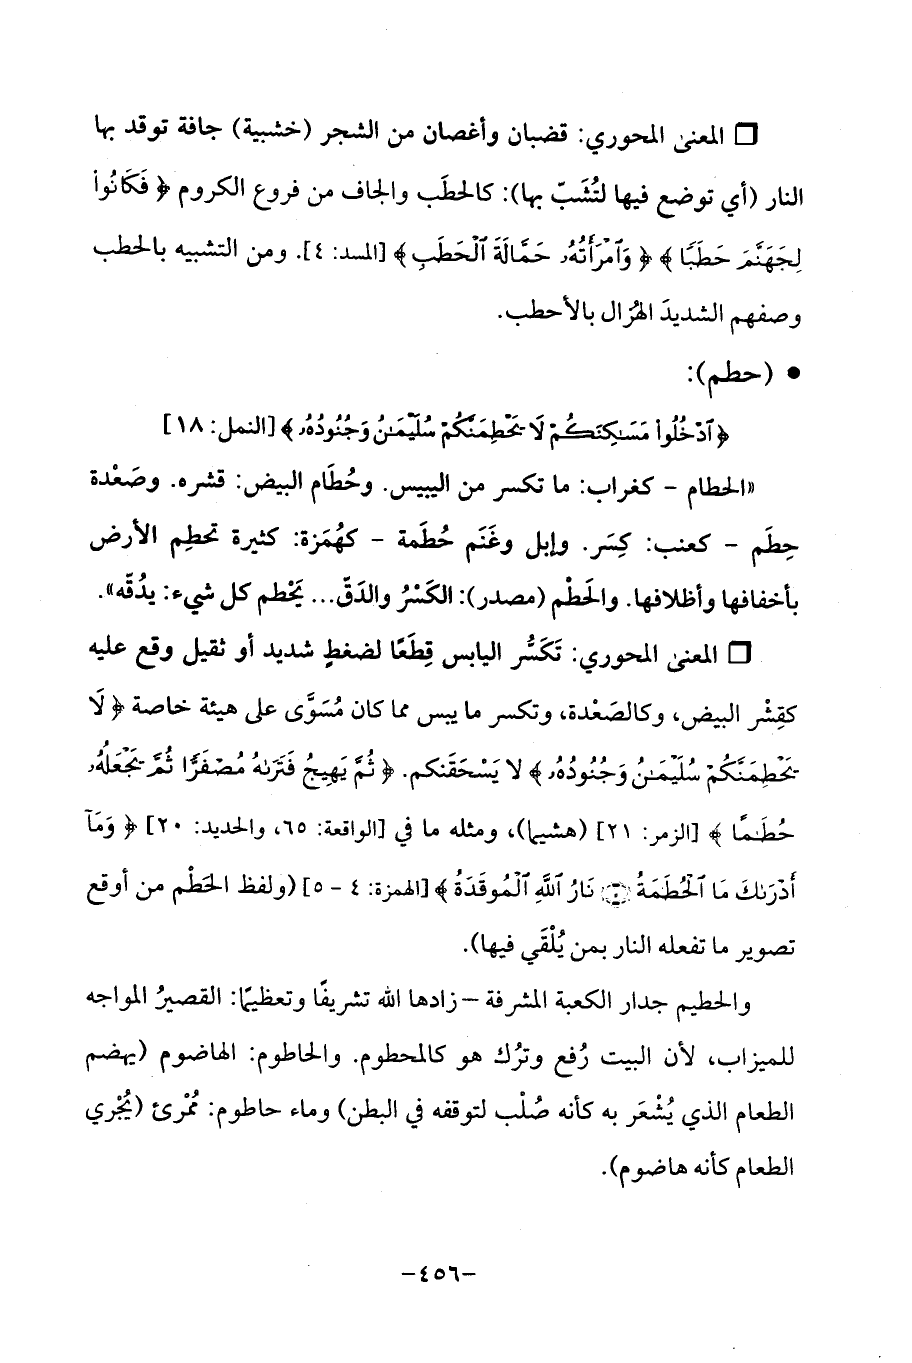 □ المعنى المحوري: قضبان وأغصان من الشجر (خشبية) جافة توقد بها
النار (أي توضع فيها لتُشَبّ بها): كالحطَب والجاف من فروع الكروم ﴿ فَكَانُوا۟
لِجَهَنَّمَ حَطَبًا ﴾ ﴿ وَٱمْرَأَتُهُۥ حَمَّالَةَ ٱلْحَطَبِ ﴾ [المسد: ٤]. ومن التشبيه بالحطب
وصفهم الشديدَ الهُزال بالأحطب.
• (حطم):
﴿ ٱدْخُلُوا۟ مَسَـٰكِنَكُمْ لَا يَحْطِمَنَّكُمْ سُلَيْمَـٰنُ وَجُنُودُهُۥ ﴾ [النمل: ١٨]
«الحطام - كغراب: ما تكسر من اليبيس. وحُطَام البيض: قشره. وصَعْدة
حِطَم - كعنب: كِسَر. وإبل وغَنَم حُطَمة - كهُمَزة: كثيرة تحطِم الأرض
بأخفافها وأظلافها. والحَطْم (مصدر): الكَسْرُ والدَقّ... يَحْطم كل شيء: يدُقّه».
□ المعنى المحوري: تَكَسُّر اليابس قِطَعًا لضغطٍ شديد أو ثقيل وقع عليه
كقِشْر البيض، وكالصَعْدة، وتكسر ما يبس مما كان مُسَوًّى على هيئة خاصة ﴿ لَا
يَحْطِمَنَّكُمْ سُلَيْمَـٰنُ وَجُنُودُهُۥ ﴾ لا يَسْحَقَنكم. ﴿ ثُمَّ يَهِيجُ فَتَرَىٰهُ مُصْفَرًّا ثُمَّ يَجْعَلُهُۥ
حُطَـٰمًا ﴾ [الزمر: ٢١] (هشيما)، ومثله ما في [الواقعة: ٦٥، والحديد: ٢٠] ﴿ وَمَآ
أَدْرَىٰكَ مَا ٱلْحُطَمَةُ ۝ نَارُ ٱللَّهِ ٱلْمُوقَدَةُ ﴾ [الهمزة: ٤ - ٥] (ولفظ الحَطْم من أوقع
تصوير ما تفعله النار بمن يُلْقَي فيها).
والحطيم جدار الكعبة المشرفة – زادها الله تشريفًا وتعظيمًا: القصيرُ المواجه
للميزاب، لأن البيت رُفع وتُرك هو كالمحطوم. والحاطوم: الهاضوم (يهضم
الطعام الذي يُشْعَر به كأنه صُلْب لتوقفه في البطن) وماء حاطوم: مُمْرئ (يُجْري
الطعام كأنه هاضوم).
–٤٥٦–